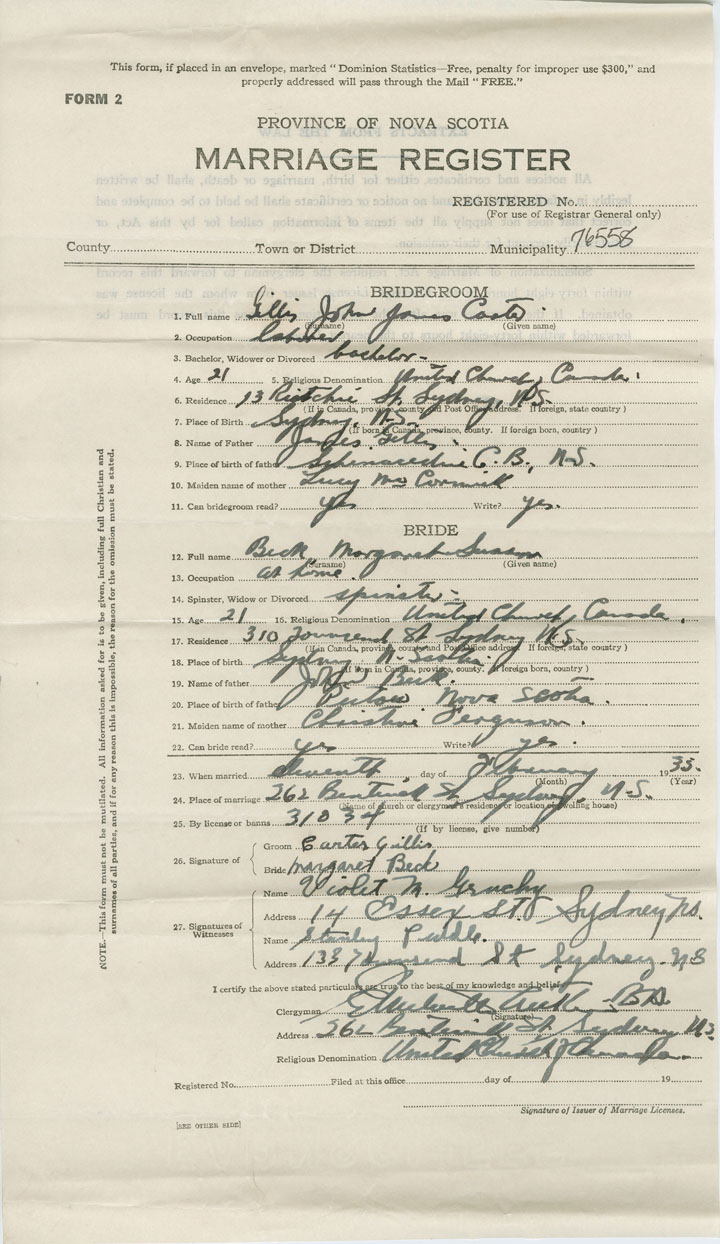 This form, if placed in an envelope, marked "Dominion Statistics—Free, penalty for improper use $300," and
properly addressed will pass through the Mail "FREE."
FORM 2
PROVINCE OF NOVA SCOTIA
MARRIAGE REGISTER
REGISTERED No.
(For use of Registrar General only)
County Town or District Municipality 76558
BRIDEGROOM
1. Full name Gillis John James
(Surname) (Given name)
2. Occupation laborer
3. Bachelor, Widower or Divorced bachelor -
4. Age 21 5. Religious Denomination United Church, Canada.
6. Residence 13 Ritchie St. Sydney, N.S.
(If in Canada, province, county and Post Office address. If foreign, state country)
7. Place of Birth Sydney, N.S.
(If born in Canada, province, county. If foreign born, country)
8. Name of Father James Gillis.
9. Place of birth of father C.B., N.S.
10. Maiden name of mother Lucy McCormick
11. Can bridegroom read? yes Write? yes.
BRIDE
12. Full name Beck Margaret Susan
(Surname) (Given name)
13. Occupation at home.
14. Spinster, Widow or Divorced spinster -
15. Age 21 16. Religious Denomination United Church, Canada.
17. Residence 310 Townsend St Sydney N.S.
(If in Canada, province, county and Post Office address. If foreign, state country)
18. Place of birth Sydney N. Scotia
(If born in Canada, province, county. If foreign born, country)
19. Name of father John Beck.
20. Place of birth of father Pictou Nova Scotia.
21. Maiden name of mother Christine Ferguson.
22. Can bride read? yes Write? yes.
23. When married day of 1935.
(Month) (Year)
24. Place of marriage 262 St, Sydney, N.S.
(Name of church or clergyman's residence or location of dwelling house)
25. By license or banns 31034
(If by license, give number)
26. Signature of
Groom Gillis
Bride Margaret Beck
27. Signatures of Witnesses
Name Violet M. Gruchy
Address 14 Essex St. Sydney NS.
Name Stanley
Address Townsend St Sydney. NS
I certify the above stated particulars are true to the best of my knowledge and belief.
Clergyman B.A.
(Signature)
Address 262 St, Sydney NS
Religious Denomination United Church of Canada.
Registered No. Filed at this office day of 19
Signature of Issuer of Marriage Licenses.
[SEE OTHER SIDE]
NOTE.—This form must not be mutilated. All information asked for is to be given, including full Christian and
surnames of all parties, and if for any reason this is impossible, the reason for the omission must be stated.